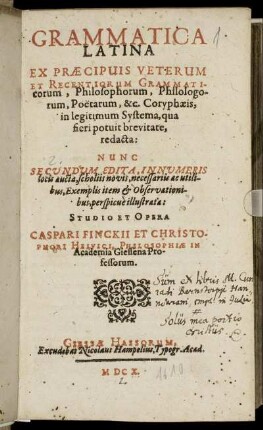 GRAMMATICA
LATINA
EX PRÆCIPUIS VETERUM
ET RECENTIORUM GRAMMATI-
corum, Philosophorum, Philologo-
rum, Poëtarum, &c. Coryphæis,
in legitimum Systema, qua
fieri potuit brevitate,
redacta:
NUNC
SECUNDUM EDITA, INNUMERIS
locis aucta, scholiis novis, necessariis ac utili-
bus, Exemplis item & Observationi-
bus, perspicuè illustrata:
STUDIO ET OPERA
CASPARI FINCKII ET CHRISTO-
PHORI HELVICI, PHILOSOPHIÆ IN
Academia Giessena Pro-
fessorum.
Sum ex libris M.
Solus mea portio
GIESSÆ HASSORUM,
Excudebat Nicolaus Hampelius, Typogr. Acad.
M DC X.